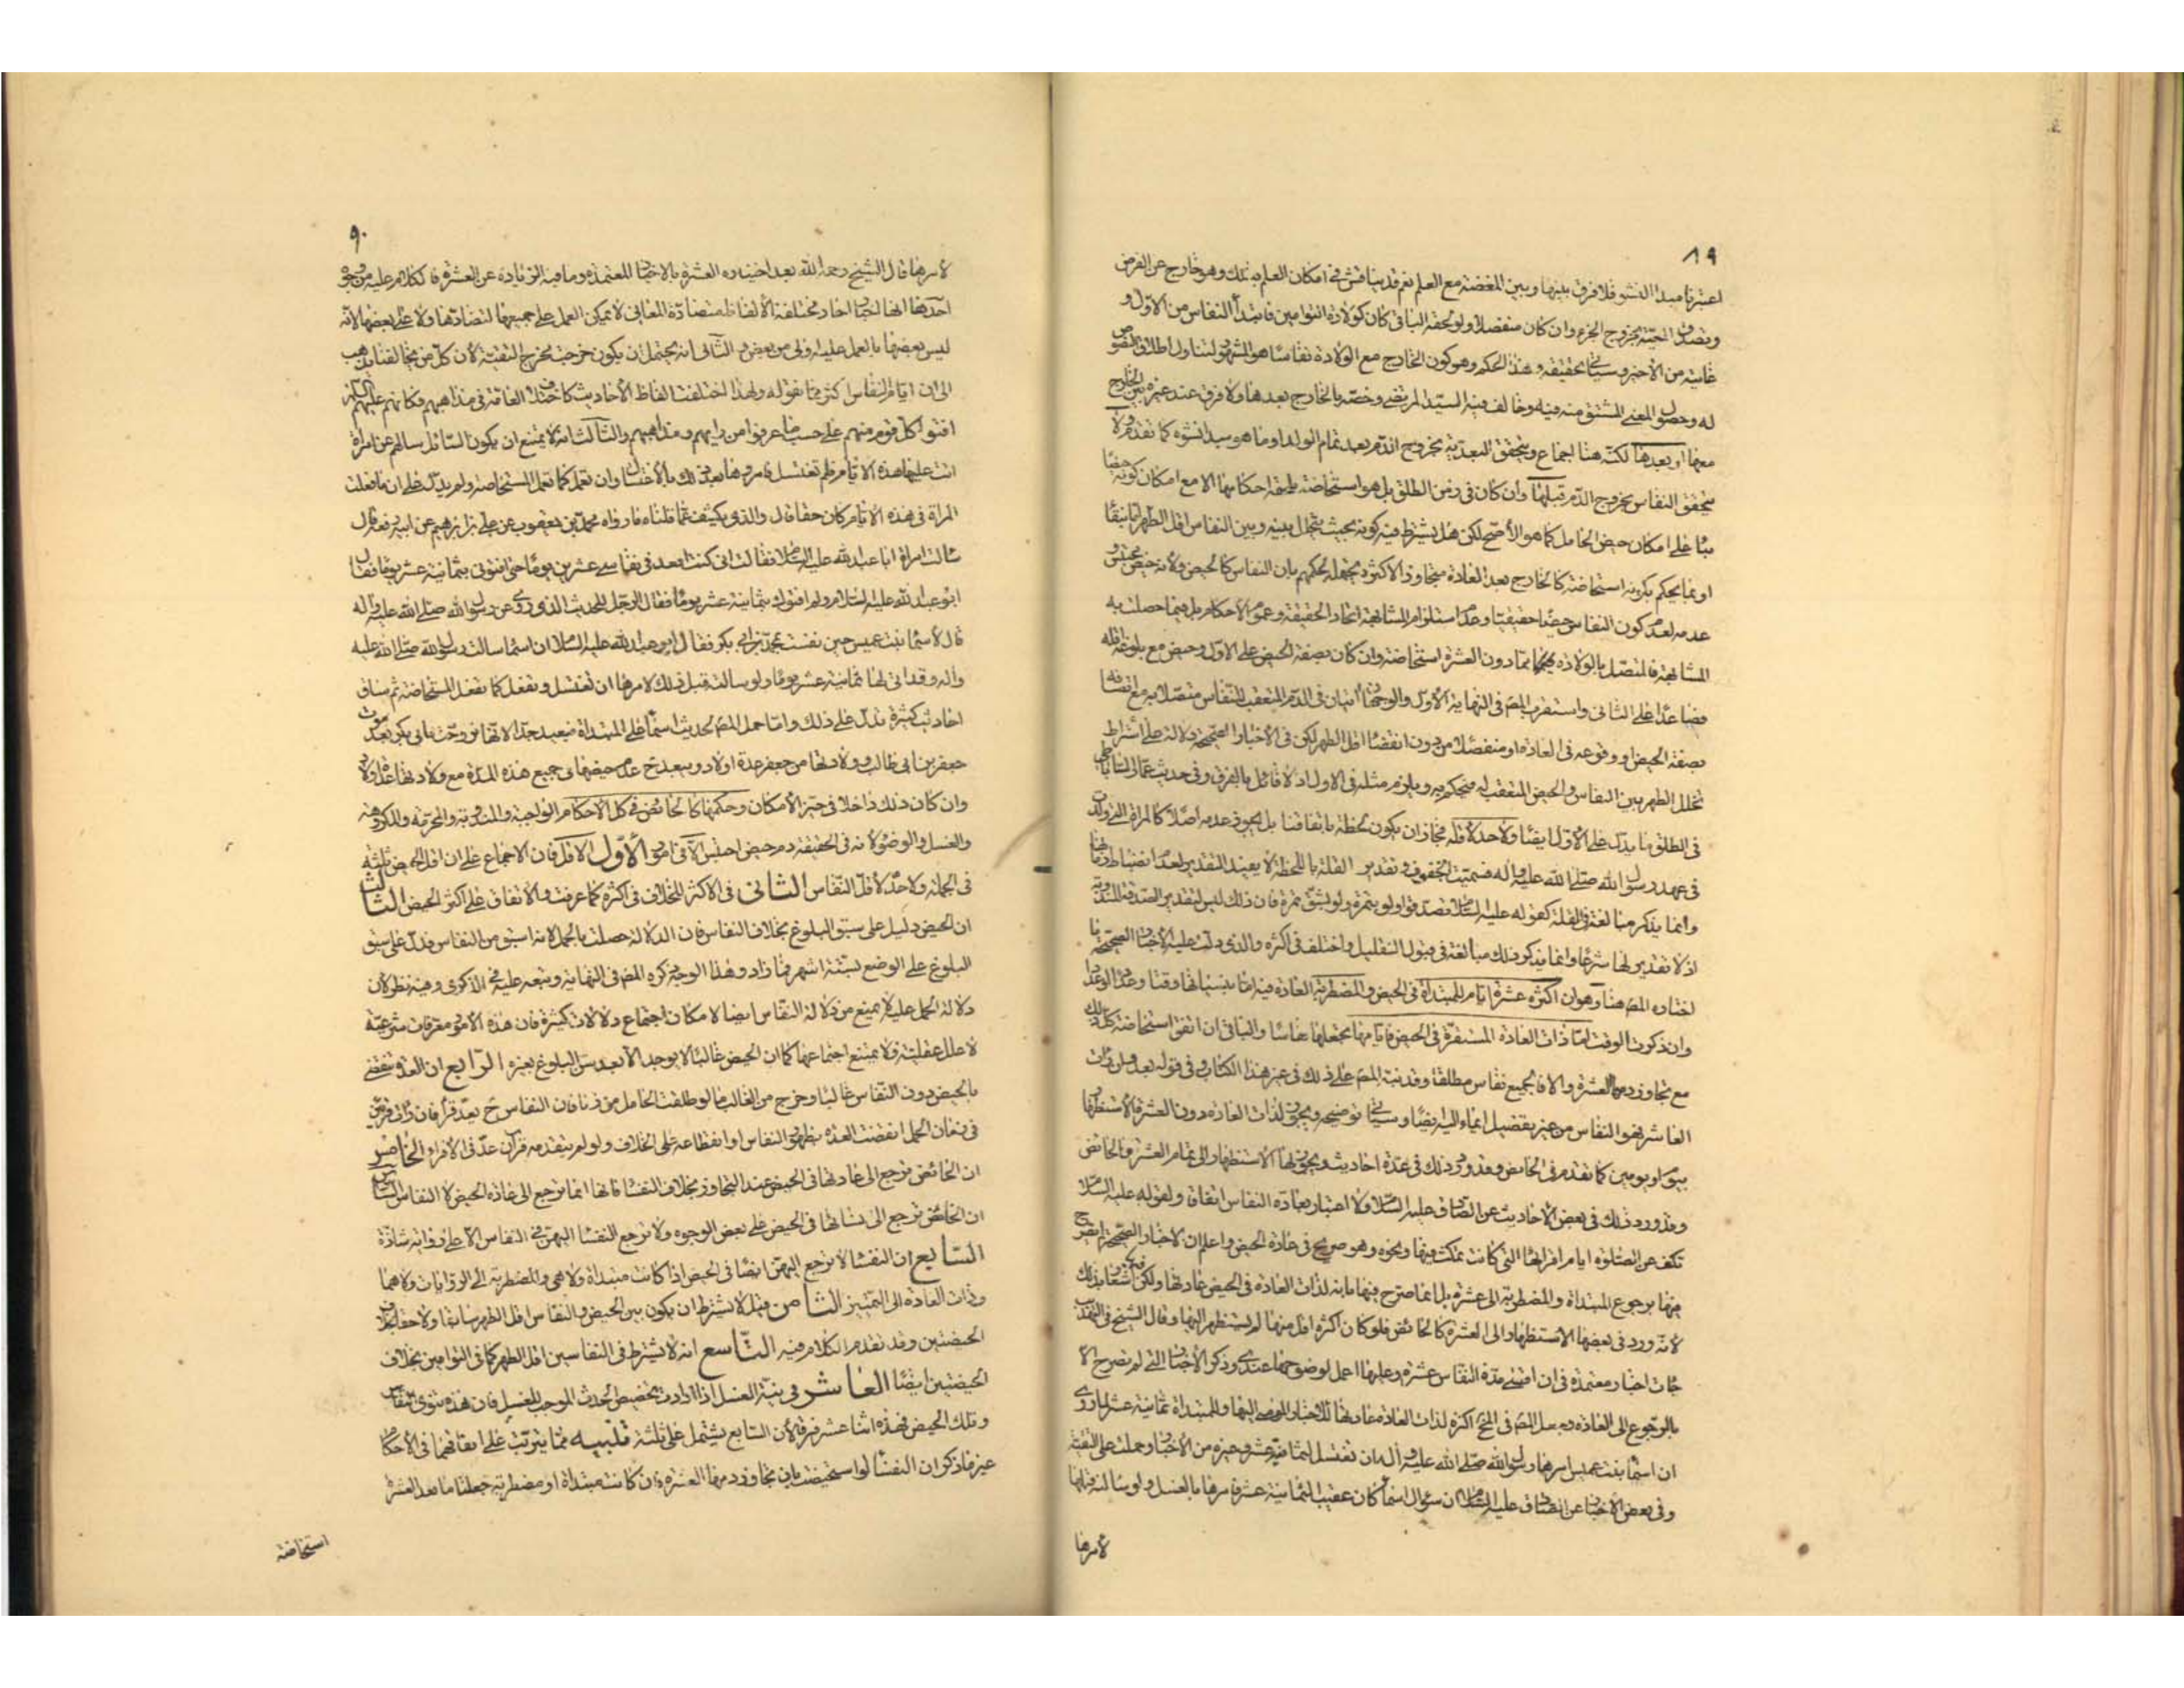 ٨٩
اعتبرنا مبدأ النشو فلا فرق بينها وبين المضغة مع العلم نعم قد يناقش في امكان العلم به بذلك وهو خارج عن الفرض
وتصدق المعية بخروج الجزء وان كان منفصلا ولو لحقه الباقي كان كولادة التوامين فابتدأ النفاس من الاول و
غايته من الاخير وسيأتي تحقيقه وهذا الحكم وهو كون الخارج مع الولادة نفاسا هو المشهور لتناول اطلاق النصوص
له وحصول المعنى المشتق منه فيه وخالف فيه السيد المرتضى وخصه بالخارج بعدها ولا فرق عند غيره بين الخارج
معها او بعدها لكنه هنا اجماع ويتحقق البعدية بخروج الدم بعد تمام الولد او ما هو مبدا نشوه كما تقدم ولا
يتحقق النفاس بخروج الدم قبلها وان كان في زمن الطلق بل هو استحاضة يلحقه احكامها الا مع امكان كونه حيضا
بنا على امكان حيض الحامل كما هو الاصح لكن هل يشترط فيه كونه بحيث يتخلل بينه وبين النفاس اقل الطهر تام سابقا
او بما يحكم بكونه استحاضة كالخارج بعد العادة متجاوز الاكثر وجهان لحكمهم بان النفاس كالحيض ولانه حيض محتبس و
عدمه لعدم كون النفاس حيضا حقيقيا وعدم استلزام المشابهة اتحاد الحقيقة وعموم الاحكام بل فيما حصلت به
المشابهة فالمتصل بالولادة فيهما بما دون العشرة استحاضة وان كان بصفة الحيض على الاول وحيض مع بلوغه اقله
فصاعدا على الثاني واستقرب المص في النهاية الاول والوجهان اتيان في الدم المتعقب للنفاس متصلا به مع اتصافه
بصفة الحيض او وقوعه في العادة او منفصلا من دون انقضا اقل الطهر لكن في الاخبار الصحيحة دلالة على اشتراط
تخلل الطهر بين النفاس والحيض المتعقب له فيحكم به ويلزم مثله في الاول اذ لا قائل بالفرق وفي حديث عمار الساباطي
في الطلق ما يدل على الاول ايضا ولا حد لاقله فجاز ان يكون لحظة باتفاقنا بل يجوز عدمه اصلا كالمراة التي ولدت
في عهد رسول الله صلى الله عليه واله فسميت الجفوف وتقدير القلة باللحظة لا يفيد التقدير لعدم انضباطها
وانما يذكر مبالغة في القلة كقوله عليه السلام تصدقوا ولو بتمرة ولو بشق تمرة فان ذلك ليس لتقدير الصدقة المندوبة
اذ لا تقدير لها شرعا وانما يذكر ذلك مبالغة في قبول التقليل واختلف في اكثره والذي دلت عليه الاخبار الصحيحة
اختاره المص هنا وهو ان اكثره عشرة ايام للمبتداة في الحيض والمضطربة العادة فيه اما بنسيانها وقتا وعددا او عددا
وان ذكرت الوقت اما ذات العادة المستقرة في الحيض فايامها تجعلها نفاسا والباقي ان اتفق استحاضة كل ذلك
مع تجاوز دمها العشرة والا فالجميع نفاس مطلقا وقد نبه المص على ذلك في غير هذا الكتاب وفي قوله بعد ولو رات
العاشر فهو النفاس من غير تفصيل ايماء اليه ايضا وسيأتي توضيحه ويجوز لذات العادة دون العشرة الاستظهار
بيوم او يومين كما تقدم في الحائض وقد ورد ذلك في عدة احاديث ويجوز لها الاستظهار الى تمام العشرة كالحائض
وقد ورد ذلك في بعض الاحاديث عن الصادق عليه السلام ولا اعتبار بعادة النفاس اتفاقا ولقوله عليه السلام
تكف عن الصلوة ايام اقرائها التي كانت تمكث فيها ونحوه وهو صريح في عادة الحيض واعلم ان الاخبار الصحيحة لم تصرح
فيها برجوع المبتداة والمضطربة الى عشرة بل انما صرح فيها بانه لذات العادة في الحيض عادتها ولكن فيه اشعار بذلك
لانه ورد في بعضها الاستظهار الى العشرة كالحائض فلو كان اكثره اقل منها لم يستظهر اليها وقال الشيخ في التهذيب
جات اخبار معتمدة في ان اقصى مدة النفاس عشرة وعليها اعمل لوضوحها عندي وذكر الاخبار التي لم تصرح الا
بالرجوع الى العادة وجعل المص في المخ اكثره لذات العادة عادتها للاخبار المومى اليها وللمبتداة ثمانية عشر لما روي
ان اسما بنت عميس امرها رسول الله صلى الله عليه واله ان تغتسل لثمانية عشر وغيره من الاخبار وحملت على التقية
وفي بعض الاخبار عن الصادق عليه السلام ان سؤال اسما كان عقيب الثمانية عشر فامرها بالغسل ولو سالته قبلها
لامرها
٩٠
لامرها قال الشيخ رحمه الله بعد اختياره العشرة بالاخبار المعتمدة وما فيه الزيادة عن العشرة فالكلام عليه من وجوه
احدها انها اخبار احاد مختلفة الالفاظ متضادة المعاني لا يمكن العمل على جميعها لتضادها ولا على بعضها لانه
ليس بعضها بالعمل عليه اولى من بعض والثاني انه يحتمل ان يكون خرجت مخرج التقية لان كل من يخالفنا يذهب
الى ان ايام النفاس اكثر مما نقوله ولهذا اختلفت الفاظ الاحاديث كاختلاف العامة في مذاهبهم فكانهم عليهم السلام
افتوا كل قوم منهم على حسب ما عرفوا من رايهم ومذاهبهم والثالث انه لا يمتنع ان يكون السائل سالهم عن امراة
اتت عليها هذه الايام فلم تغتسل فامروها بعد ذلك بالاغتسال وان تعمل كما تعمل المستحاضة ولم يدل على ان ما فعلت
المراة في هذه الايام كان حقا قال والذي يكشف عما قلناه ما رواه محمد بن يعقوب عن علي بن ابرهيم عن ابيه رفعه قال
سالت امراة ابا عبد الله عليه السلام فقالت اني كنت اقعد في نفاسي عشرين يوما حتى افتوني بثمانية عشر يوما فقال
ابو عبد الله عليه السلام ولم افتوك بثمانية عشر يوما فقال الرجل للحديث الذي روي عن رسول الله صلى الله عليه واله
قال لاسما بنت عميس حين نفست بمحمد بن ابي بكر فقال ابو عبد الله عليه السلام ان اسما سالت رسول الله صلى الله عليه
واله وقد اتى لها ثمانية عشر يوما ولو سالته قبل ذلك لامرها ان تغتسل وتفعل كما تفعل المستحاضة ثم ساق
احاديث كثيرة تدل على ذلك واما حمل المص لحديث اسما على المبتداة فبعيد جدا لانها تزوجت بابي بكر بعد موت
جعفر بن ابي طالب وولادتها من جعفر عدة اولاد ويبعد ح عدم حيضها في جميع هذه المدة مع ولادتها عدة اولاد
وان كان ذلك داخلا في حيز الامكان وحكمها كالحائض في كل الاحكام الواجبة والمندوبة والمحرمة والمكروهة
والغسل والوضوء لانه في الحقيقة دم حيض احتبس الا في امور الاول الاقل فان الاجماع على ان اقل الحيض ثلثة
في الجملة ولا حد لاقل النفاس الثاني في الاكثر للخلاف في اكثره كما عرفت والاتفاق على اكثر الحيض الثالث
ان الحيض دليل على سبق البلوغ بخلاف النفاس فان الدلالة حصلت بالحمل لانه اسبق من النفاس فدل على سبق
البلوغ على الوضع بستة اشهر فما زاد وهذا الوجه ذكره المص في النهاية وتبعه عليه في الذكرى وفيه نظر لان
دلالة الحمل عليه لا يمنع من دلالة النفاس ايضا لامكان اجتماع دلالات كثيرة فان هذه الامور معرفات شرعية
لا علل عقلية فلا يمتنع اجتماعها كما ان الحيض غالبا لا يوجد الا بعد سن البلوغ بغيره الرابع ان العدة تنقضي
بالحيض دون النفاس غالبا وخرج من الغالب ما لو طلقت الحامل من زنا فان النفاس ح يعد قرءا فان رات قرئين
في زمان الحمل انقضت العدة بظهور النفاس او انقطاعه على الخلاف ولو لم يتقدمه قرآن عد في الاقراء الخامس
ان الحائض ترجع الى عادتها في الحيض عند التجاوز بخلاف النفسا فانها انما ترجع الى عادة الحيض لا النفاس السادس
ان الحائض ترجع الى نسائها في الحيض على بعض الوجوه ولا ترجع النفسا اليهن في النفاس الا على رواية شاذة
السابع ان النفسا لا ترجع اليهن ايضا في الحيض اذا كانت مبتداة ولا هي والمضطربة الى الروايات ولا هما
وذات العادة الى التمييز الثامن قيل لا يشترط ان يكون بين الحيض والنفاس اقل الطهر سابقا ولاحقا بخلاف
الحيضتين وقد تقدم الكلام فيه التاسع انه لا يشترط في النفاسين اقل الطهر كما في التوامين بخلاف
الحيضتين ايضا العاشر في نية الغسل اذا ارادت تخصيص الحدث الموجب للغسل فان هذه تنوي النفاس
وتلك الحيض فهذه اثنا عشر فرقا لان السابع يشتمل على ثلثة تنبيه مما يترتب على اتفاقهما في الاحكام
غير ما ذكر ان النفسا لو استحيضت بان تجاوز دمها العشرة فان كانت مبتداة او مضطربة جعلنا ما بعد العشرة
استحاضة